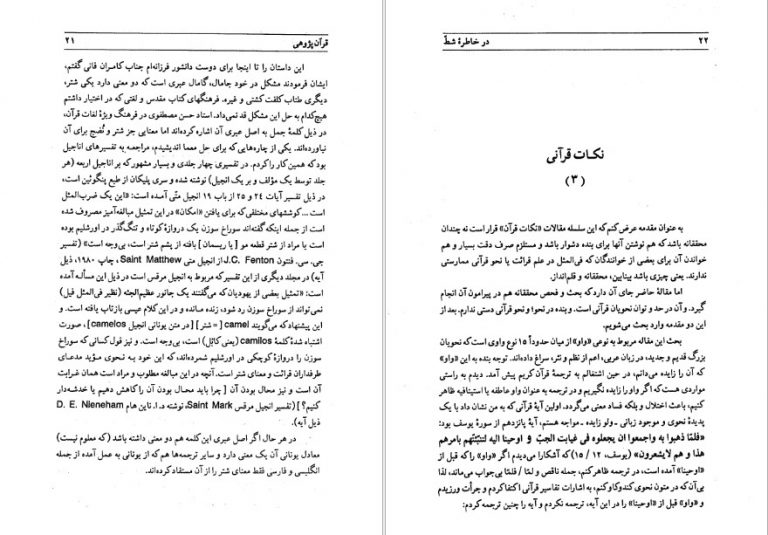 قرآن‌پژوهی ۲۱
این داستان را تا اینجا برای دوست دانشور فرزانه‌ام جناب کامران فانی گفتم،
ایشان فرمودند مشکل در خود جامال، گامال عبری است که دو معنی دارد یکی شتر،
دیگری طناب کلفت کشتی و غیره. فرهنگهای کتاب مقدس و لغتی که در اختیار داشتم
هیچ‌کدام به حل این مشکل قد نمی‌داد. استاد حسن مصطفوی در فرهنگ ویژهٔ لغات قرآن،
در ذیل کلمهٔ جمل به اصل عبری آن اشاره کرده‌اند اما معنایی جز شتر و نُضج برای آن
نیاورده‌اند. یکی از چاره‌هایی که برای حل معما اندیشیدم، مراجعه به تفسیرهای اناجیل
بود که همین کار را کردم. در تفسیری چهار جلدی و بسیار مشهور که بر اناجیل اربعه (هر
جلد توسط یک مؤلف و بر یک انجیل) نوشته شده و سری پلیکان از طبع پنگوئین است،
در ذیل تفسیر آیات ۲۴ و ۲۵ از باب ۱۹ انجیل متّی آمده است: «این یک ضرب‌المثل
است ... کوششهای مختلفی که برای یافتن «امکان» در این تمثیل مبالغه‌آمیز مصروف شده
است از جمله اینکه گفته‌اند سوراخ سوزن یک دروازهٔ کوتاه و تنگ‌گذر در اورشلیم بوده
است یا مراد از شتر قطعه مو [یا ریسمان] بافته از پشم شتر است، بی‌وجه است» (تفسیر
جی. سی. فنتون J.C. Fenton از انجیل متی Saint Matthew، چاپ ۱۹۸۰، ذیل
آیه) در مجلد دیگری از این تفسیر که مربوط به انجیل مرقس است در ذیل این مسأله آمده
است: «تمثیل بعضی از یهودیان که می‌گفتند یک جانور عظیم‌الجثه (نظیر فی‌المثل فیل)
نمی‌تواند از سوراخ سوزن رد شود، زنده مـانده و در این کلام عیسی بازتاب یافته است.
این پیشنهاد که می‌گویند camel [= شتر] [در متن یونانی انجیل camelos]، صورت
اشتباه شدهٔ کلمهٔ camilos (یعنی کابُل) است، بی‌وجه است. و نیز قول کسانی که سوراخ
سوزن را دروازهٔ کوچکی در اورشلیم شمرده‌اند، که این خود به نـحوی مـؤید مدعای
طرفداران قرائت و معنای شتر است. آنچه در این مبالغه مطلوب و مراد است همان غرابت
آن است و نیز محال بودن آن [چرا باید محال بودن آن را کاهش دهیم یا خدشه‌دار
کنیم؟] (تفسیر انجیل مرقس Saint Mark، نوشته د. ا. ناین هام D. E. Nieneham
ذیل آیه).
در هر حال اگر اصل عبری این کلمه هم دو معنی داشته باشد (که معلوم نیست)
معادل یونانی آن یک معنی دارد و سایر ترجمه‌ها هم که از یونانی به عمل آمده از جمله
انگلیسی و فارسی فقط معنای شتر را از آن مستفاد کرده‌اند.
۲۲ در خاطرهٔ شطّ
نکات قرآنی
(۳)
به عنوان مقدمه عرض کنم که این سلسله مقالات «نکات قرآن» قرار است نه چندان
محققانه باشد که هم نوشتن آنها برای بنده دشوار باشد و مستلزم صرف دقت بسیار و هم
خواندن آن برای بعضی از خوانندگان که فی‌المثل در علم قرائت یا نحو قرآنی ممارستی
ندارند. یعنی چیزی باشد بینابین، محققانه و قلم‌انداز.
اما مقالهٔ حاضر جای آن دارد که بحث و فحص محققانه هم در پیرامون آن انجام
گیرد. و آن در حد و توان نحویان قرآنی است. و بنده در نحو و نحو قرآنی دستی ندارم. بعد از
این دو مقدمه وارد بحث می‌شویم.
بحث این مقاله مربوط به نوعی «واو» است از میان حدوداً ۱۵ نوع واوی است که نحویان
بزرگ قدیم و جدید، در زبان عربی، اعم از نظم و نثر، سراغ داده‌اند. توجه بنده به این «واو»
که آن را زایده می‌دانم، در حین اشتغالم به ترجمهٔ قرآن کریم پیش آمد. دیدم به راستی
مواردی هست که اگر واو را زایده نگیریم و در ترجمه به عنوان واو عاطفه یا استینافیه ظاهر
کنیم، باعث اختلال و بلکه فساد معنی می‌گردد. اولین آیهٔ قرآنی که به من نشان داد با یک
پدیدهٔ نحوی و موجود زبانی ـ ولو زایده ـ مواجه هستم، آیهٔ پانزدهم از سورهٔ یوسف بود:
«فلمّا ذهبوا به واجمعوا ان یجعلوه فی غیابت الجبّ و اوحینا الیه لتنبّئنّهم بامرهم
هذا و هم لایشعرون» (یوسف، ۱۲ / ۱۵) که آشکارا می‌دیدم اگر «واو» را که قبل از
«اوحینا» آمده است، در ترجمه ظاهر کنم، جمله ناقص و لمّا / فلمّا بی‌جواب می‌ماند، لذا
بی‌آن‌که در متون نحوی کندوکاو کنم، به اشارات تفاسیر قرآنی اکتفا کردم و جرأت ورزیدم
و «واو» قبل از «اوحینا» را در این آیه، ترجمه نکردم و آیه را چنین ترجمه کردم: